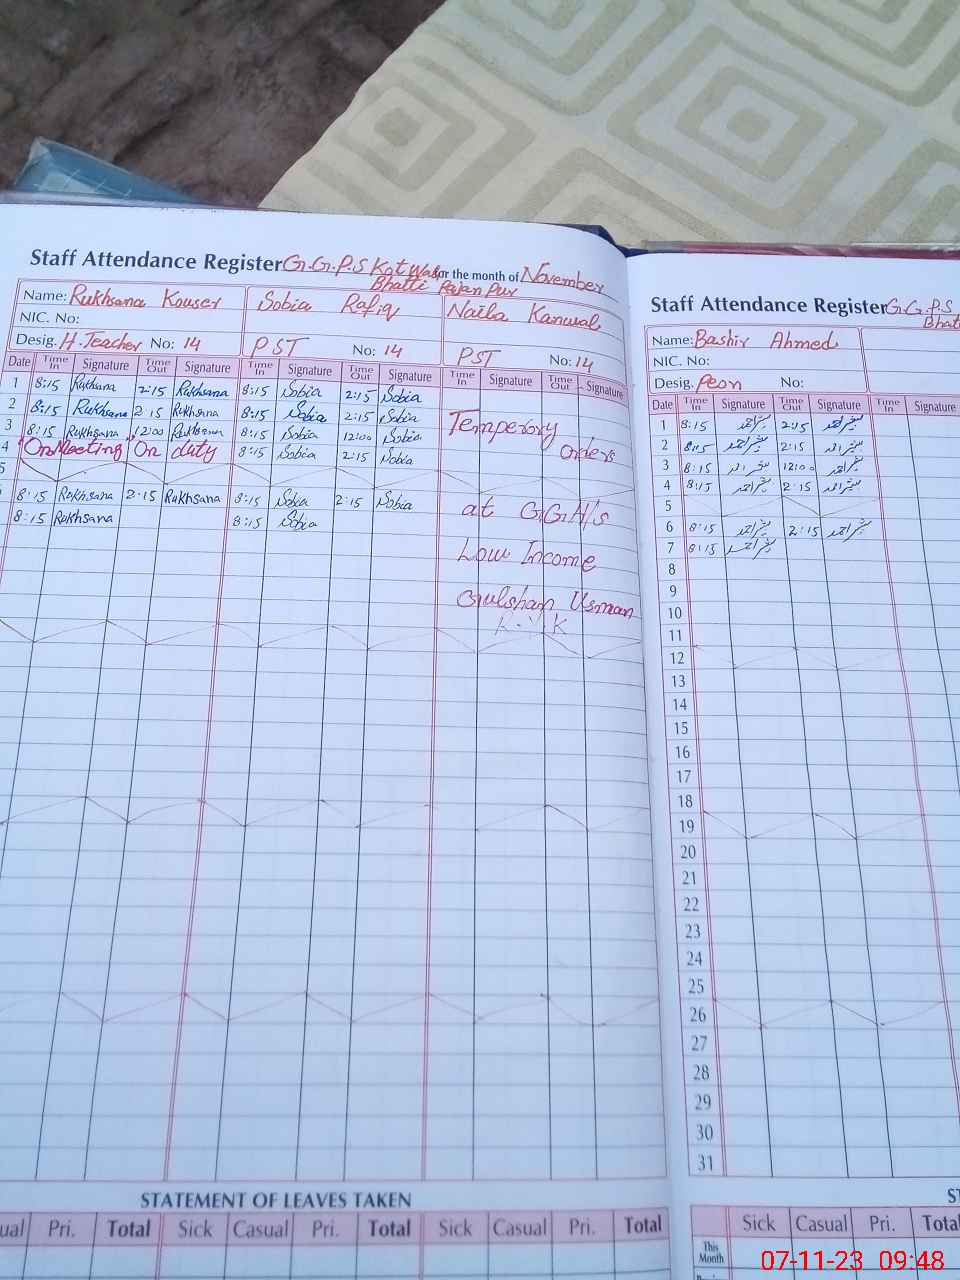 Staff Attendance Register G.G.P.S Kot Wala for the month of November
Bhatti Rajan Pur
Name: Rukhsana Kouser Sobia Rafiq Naila Kanwal
NIC. No:
Desig. H.Teacher No: 14 PST No: 14 PST No: 14
Date Time In Signature Time Out Signature Time In Signature Time Out Signature Time In Signature Time Out Signature
1 8:15 Rukhsana 2:15 Rukhsana 8:15 Sobia 2:15 Sobia
2 8:15 Rukhsana 2 15 Rukhsana 8:15 Sobia 2:15 Sobia
3 8:15 Rukhsana 12:00 Rukhsana 8:15 Sobia 12:00 Sobia
4 On Meeting On duty 8:15 Sobia 2:15 Sobia
5
8:15 Rukhsana 2:15 Rukhsana 8:15 Sobia 2:15 Sobia
8:15 Rukhsana 8:15 Sobia
Temperoxy
orders
at G.G.H/s
Low Income
Gulshan Usman
R.Y.K
STATEMENT OF LEAVES TAKEN
ual Pri. Total Sick Casual Pri. Total Sick Casual Pri. Total
Staff Attendance Register G.G.P.S
Bhat
Name: Bashir Ahmed
NIC. No:
Desig. Peon No:
Date Time In Signature Time Out Signature Time In Signature
1 8:15 بشیر احمد 2:15 بشیر احمد
2 8:15 بشیر احمد 2:15 بشیر احمد
3 8:15 بشیر احمد 12:00 بشیر احمد
4 8:15 بشیر احمد 2:15 بشیر احمد
5
6 8:15 بشیر احمد 2:15 بشیر احمد
7 8:15 بشیر احمد
8
9
10
11
12
13
14
15
16
17
18
19
20
21
22
23
24
25
26
27
28
29
30
31
ST
Sick Casual Pri. Tota
This Month
07-11-23 09:48